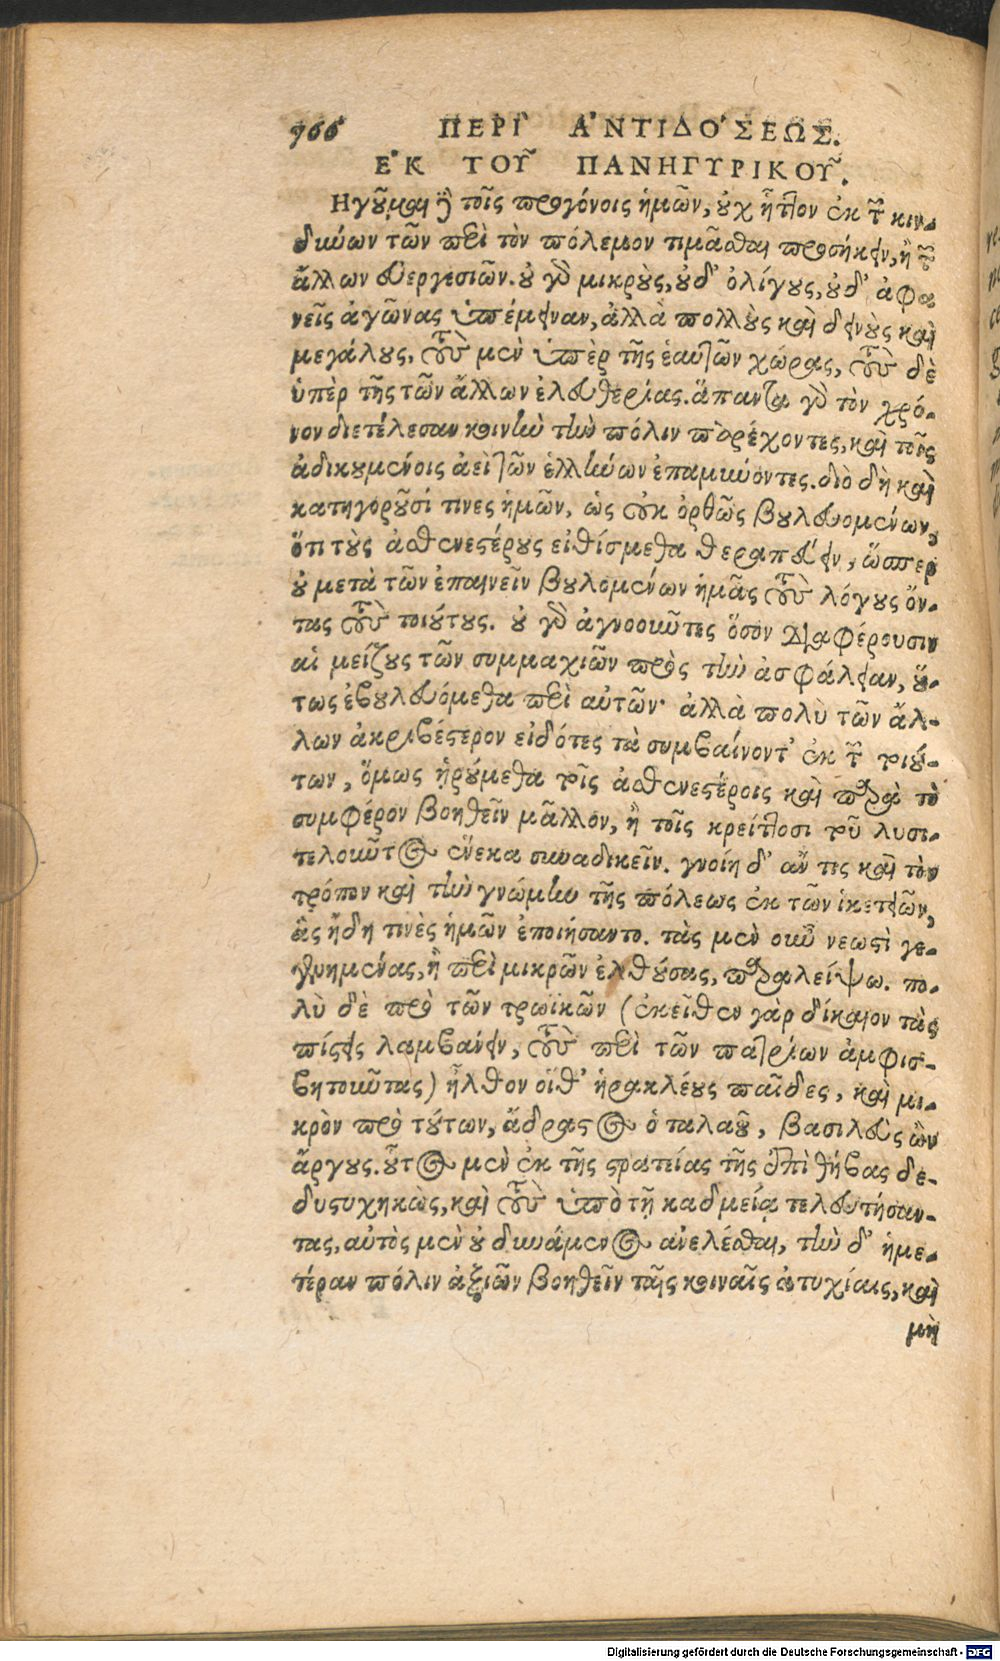 766 ΠΕΡΙ` Α᾿ΝΤΙΔΟ´ΣΕΩΣ.
Ε᾿Κ ΤΟΥ͂ ΠΑΝΗΓΥΡΙΚΟΥ͂.
Ηγοῦμαι ἢ τοῖς προγόνοις ἡμῶν, οὐχ ἧττον ἐκ τῶν κιν-
δύνων τῶν περὶ τὸν πόλεμον τιμᾶσθαι προσήκειν, ἢ τῶν
ἄλλων εὐεργεσιῶν. οὐ γὰρ μικροὺς, οὐδ' ὀλίγους, οὐδ' ἀφα
νεῖς ἀγῶνας ὑπέμειναν, ἀλλὰ πολλοὺς καὶ δεινοὺς καὶ
μεγάλους, τοὺς μὲν ὑπὲρ τῆς ἑαυτῶν χώρας, τοὺς δὲ
ὑπὲρ τῆς τῶν ἄλλων ἐλευθερίας. ἅπαντα γὰρ τὸν χρό-
νον διετέλεσαν κοινὴν τὴν πόλιν παρέχοντες, καὶ τοῖς
ἀδικουμένοις ἀεὶ τῶν ἑλλήνων ἐπαμύνοντες. διὸ δὴ καὶ
κατηγοροῦσί τινες ἡμῶν, ὡς οὐκ ὀρθῶς βουλευομένων,
ὅτι τοὺς ἀσθενεστέρους εἰθίσμεθα θεραπεύειν, ὥσπερ
οὐ μετὰ τῶν ἐπαινεῖν βουλομένων ἡμᾶς τοὺς λόγους ὄν-
τας τοὺς τοιούτους. οὐ γὰρ ἀγνοοῦντες ὅσον διαφέρουσιν
αἱ μείζους τῶν συμμαχιῶν πρὸς τὴν ἀσφάλειαν, οὕ-
τως ἐβουλευόμεθα περὶ αὐτῶν· ἀλλὰ πολὺ τῶν ἄλ-
λων ἀκριβέστερον εἰδότες τὰ συμβαίνοντ' ἐκ τῶν τοιού-
των, ὅμως ᾑρούμεθα τοῖς ἀσθενεστέροις καὶ παρὰ τὸ
συμφέρον βοηθεῖν μᾶλλον, ἢ τοῖς κρείττοσι τοῦ λυσι-
τελοῦντος ἕνεκα συναδικεῖν. γνοίη δ' ἄν τις καὶ τὸν
τρόπον καὶ τὴν γνώμην τῆς πόλεως ἐκ τῶν ἱκετειῶν,
ἃς ἤδη τινὲς ἡμῶν ἐποιήσαντο. τὰς μὲν οὖν νεωστὶ γε-
γενημένας, ἢ περὶ μικρῶν ἐλθούσας, παραλείψω. πο-
λὺ δὲ πρὸ τῶν τρωϊκῶν (ἐκεῖθεν γὰρ δίκαιον τὰς
πίστεις λαμβάνειν, τοὺς περὶ τῶν πατρίων ἀμφισ-
βητοῦντας) ἦλθον οἵθ' ἡρακλέους παῖδες, καὶ μι-
κρὸν πρὸ τούτων, ἄδραστος ὁ ταλαοῦ, βασιλεὺς ὢν
ἄργους. οὗτος μὲν ἐκ τῆς στρατείας τῆς ἐπὶ θήβας δε-
δυστυχηκὼς, καὶ τοὺς ὑπὸ τῇ καδμείᾳ τελευτήσαν-
τας, αὐτὸς μὲν οὐ δυνάμενος ἀνελέσθαι, τὴν δ' ἡμε-
τέραν πόλιν ἀξιῶν βοηθεῖν ταῖς κοιναῖς ἀτυχίαις, καὶ
μὴ
Digitalisierung gefördert durch die Deutsche Forschungsgemeinschaft - DFG